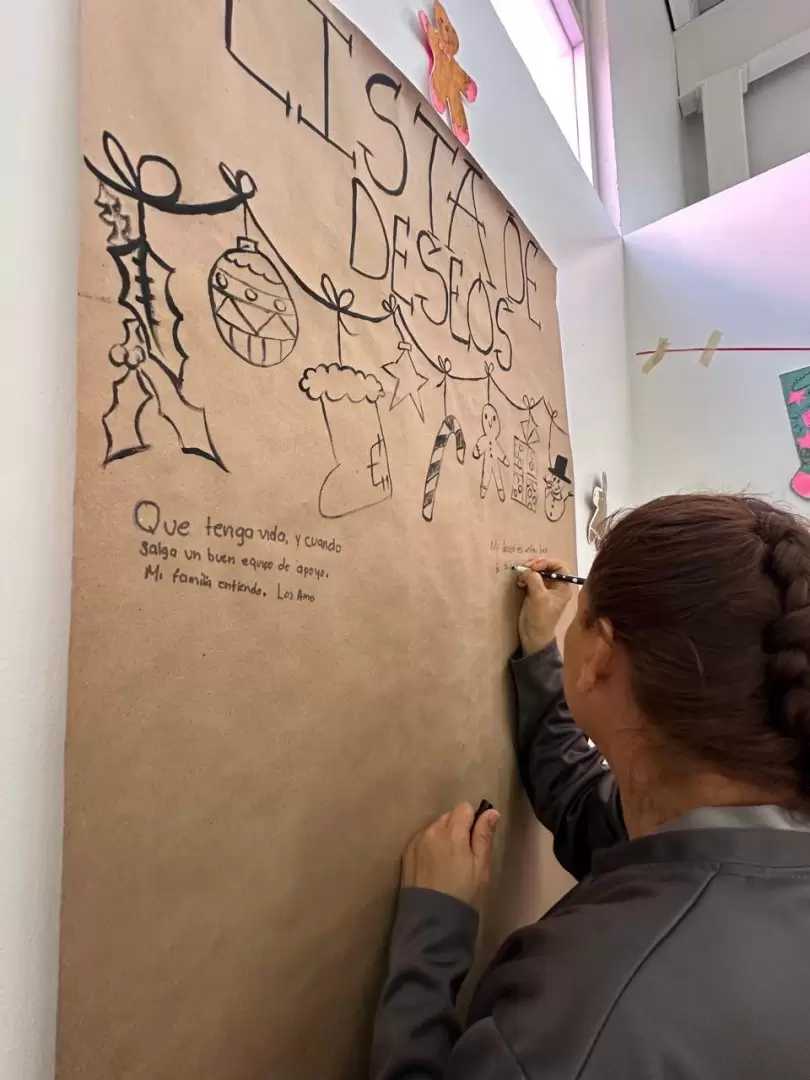 LISTA DE
DESEOS
Que tenga vida, y cuando
salga un buen equipo de apoyo.
Mi familia entiendo. Los Amo
Mi deseo es